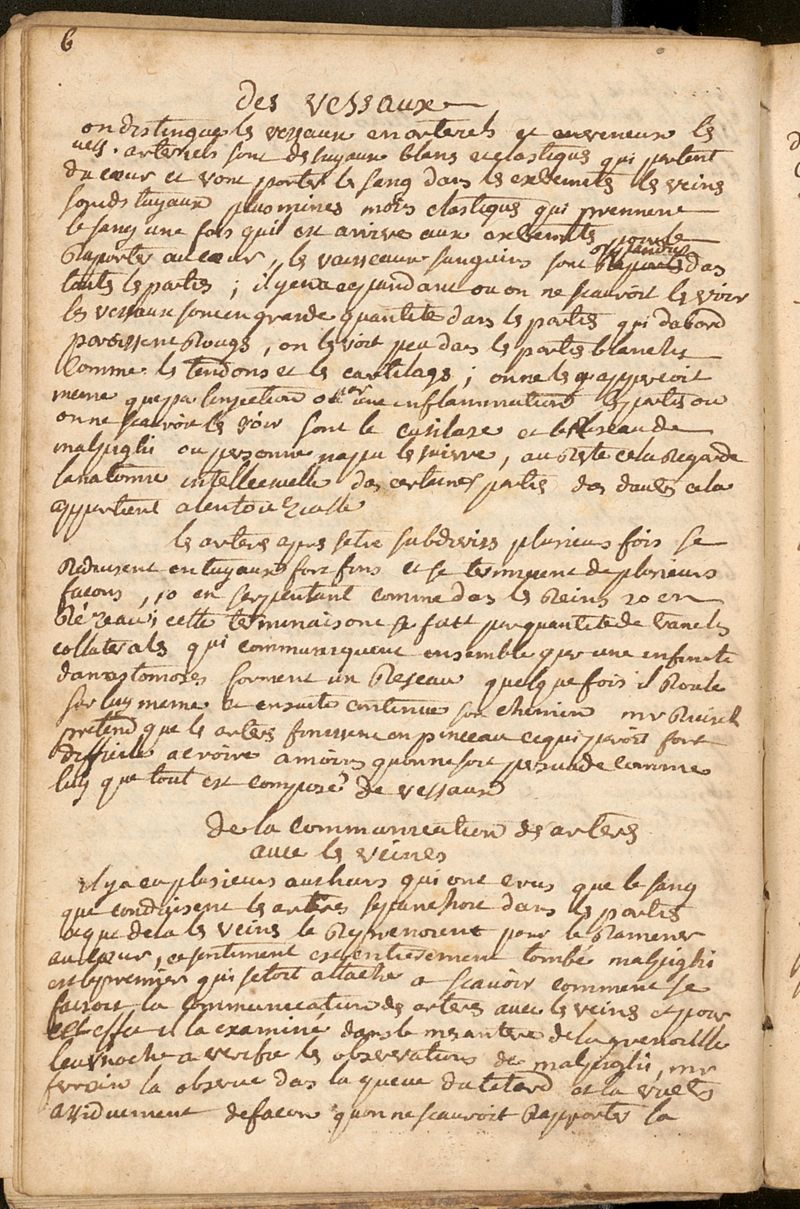 6
des vessaux
on distingue les vessaux en arteriels et en veneux les
vess. arteriels sont des tuyaux blans et elastiques qui partent
du cœur et vont porter le sang dans les extremités les veins
sonts tuyaux plus minces moins elastiques qui prennent
le sang une fois quil est arrivé aux extremités pour le
Raporter au cœur, les vaisseaux sanguins sont repandus das
touts les parties ; il y en a cependant ou on ne scauroit les voir
les vessaux sont en grande quantité dans les parties qui dabord
paroissent Rougs, on les voit peu dans les parties blanches
Comme les tendons et les cartilags ; on ne les appercoit
meme que par linjection ou par une inflammation les parties ou
on ne scauroit les voir sont le et le Reseau de
malpighi ou personne na pu les suivre, au Reste cela Regarde
lanatomie intellectuelle das certaines parties das dautres cela
appartient a
les arters apres setre subdiviss plusieurs fois se
Reduisent en tuyaux fort fins et se terminent de plusieurs
facons, 10 en serpentant comme das les Reins 20 en
Rézeau ; cette terminaisont se fait par quantité de
collaterals qui communiquent ensemble par une infinité
danastomoses forment un Reseau quelque fois il Roule
sur luy meme et ensuite continue son chemin mr Ruisch
pretend que les arters finissent en pinceau ce qui paroit fort
difficile a croire a moins quon ne soit persuadé comme
luy que tout est composé de vessaux
de la communication des arters
avec les veines
il y a eu plusieurs autheurs qui ont crus que le sang
que conduisent les arteres sepanchoit dans les parties
et que de la les veins le Reprenoient pour le Ramener
au cœur, ce sentiment est entierement tombé malpighi
est le premier qui setoit attaché a scavoir comment se
faisoit la communication des arters avec les veins et pour
cet effet il la examiné dans le mesantere de la grenouille
a verifié les observations de malpighi, mr
la observé das la queue du tetard et la
assiduement de facon quon ne scauroit Rapporter la